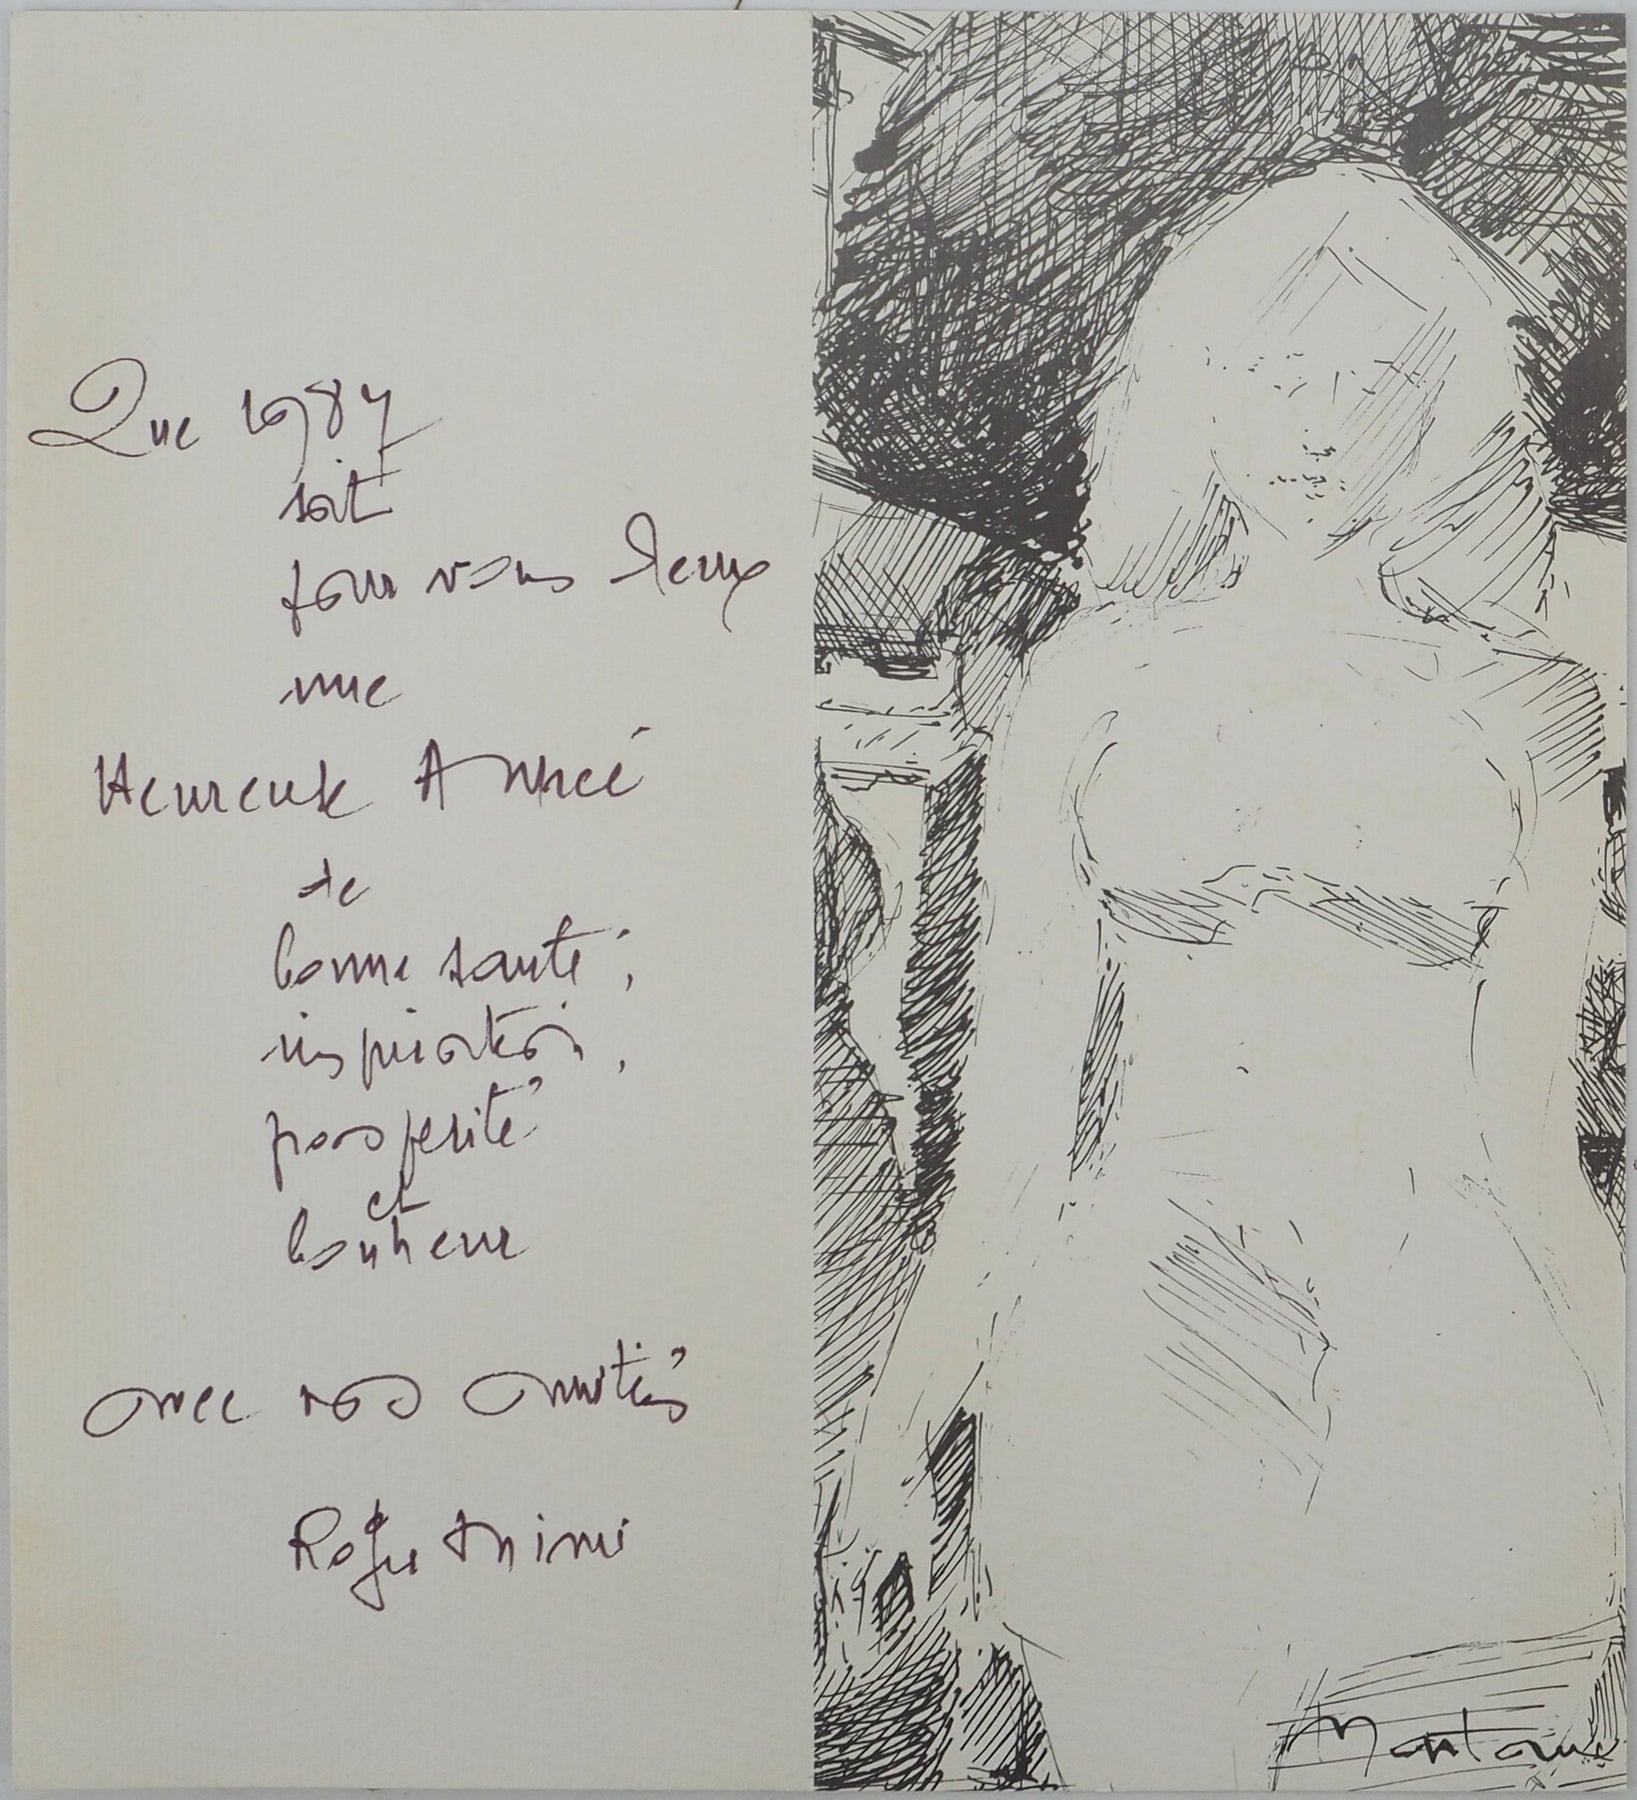 Que 1987
soit
pour vous deux
une
Heureuse Année
de
bonne santé,
inspiration,
prosperité
et
bonheur
avec nos amitiés
Roger Mimi
Montané